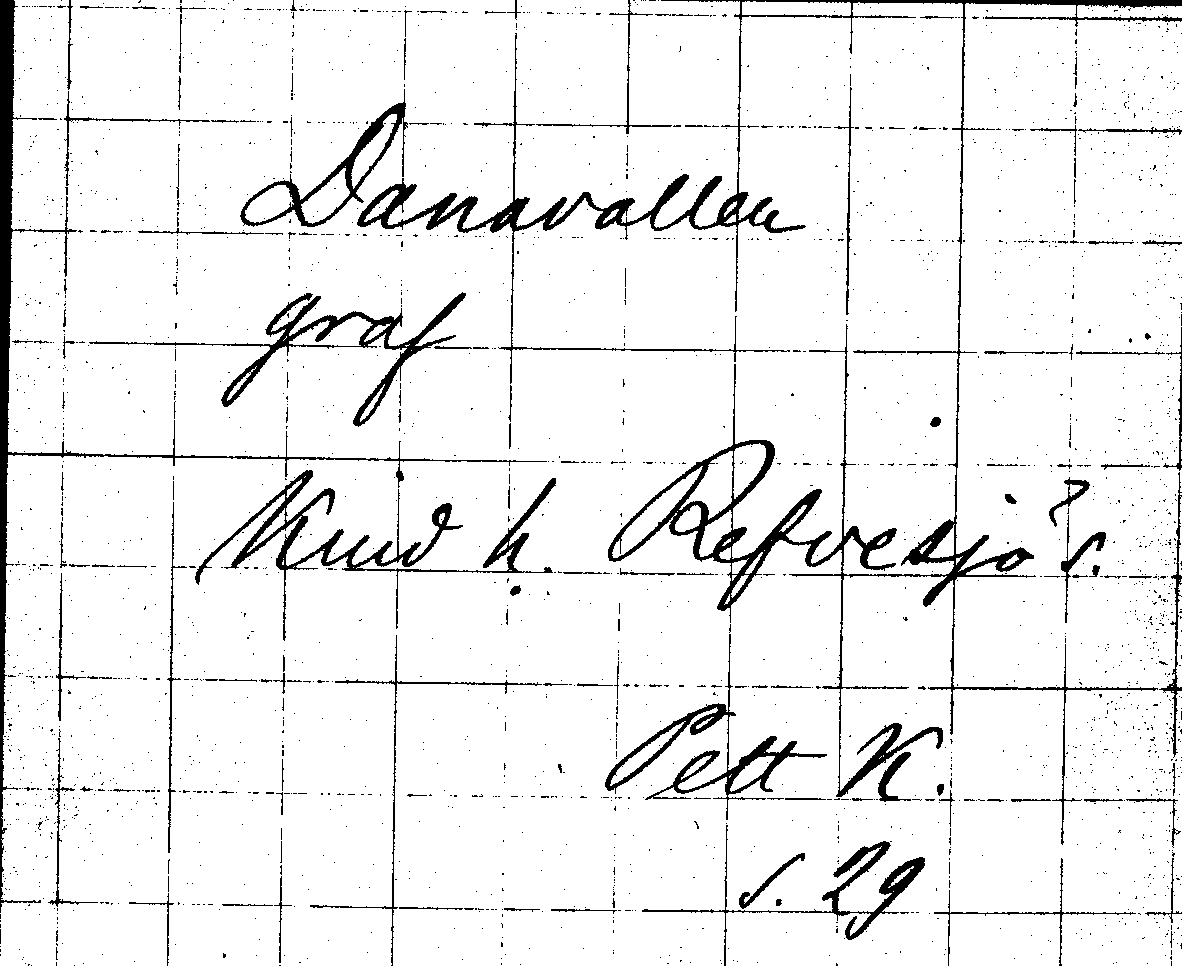 Danavallen
graf
Knut h. Refvesjö? s.
Pett K.
s. 29